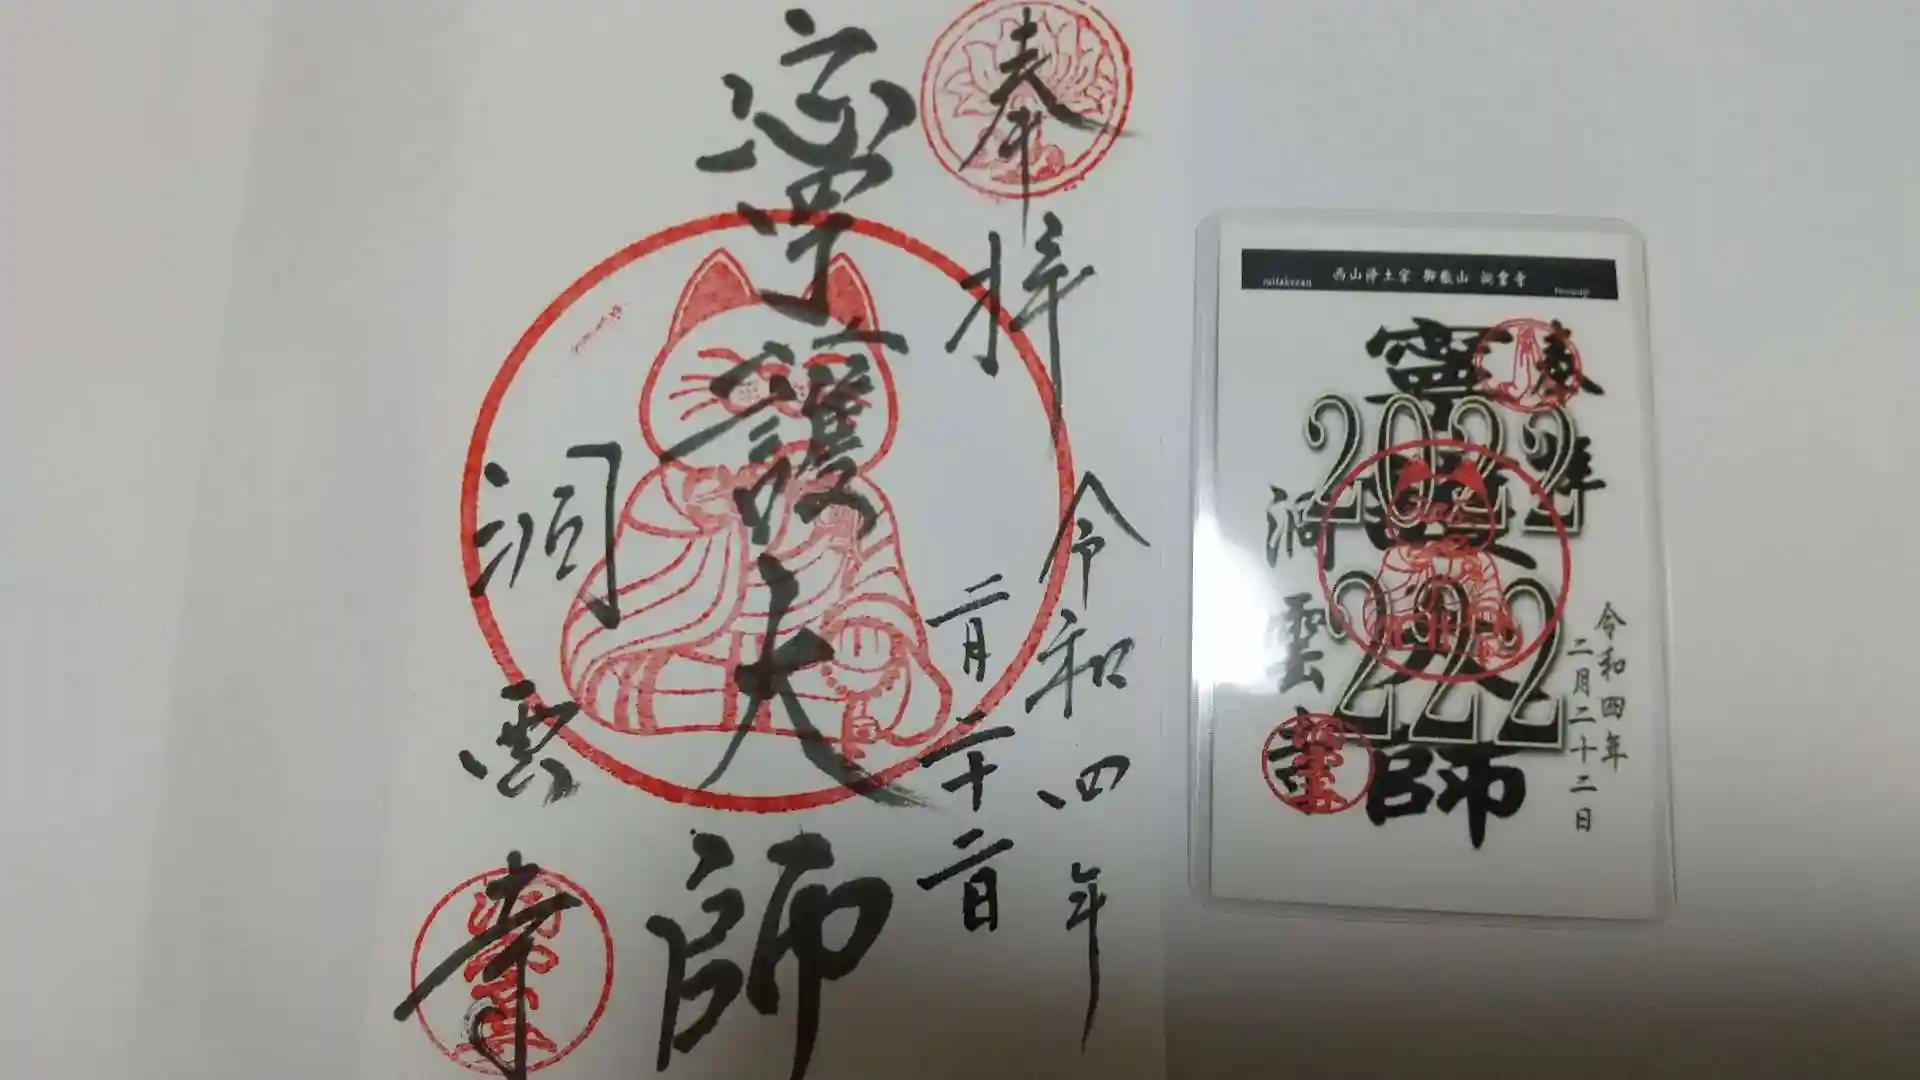 奉拝
令和四年
二月二十二日
寧護大師
洞雲寺
mitakezan
西山浄土宗 御嶽山 洞雲寺
奉拝
令和四年
二月二十二日
寧護大師
2022
222
洞雲寺